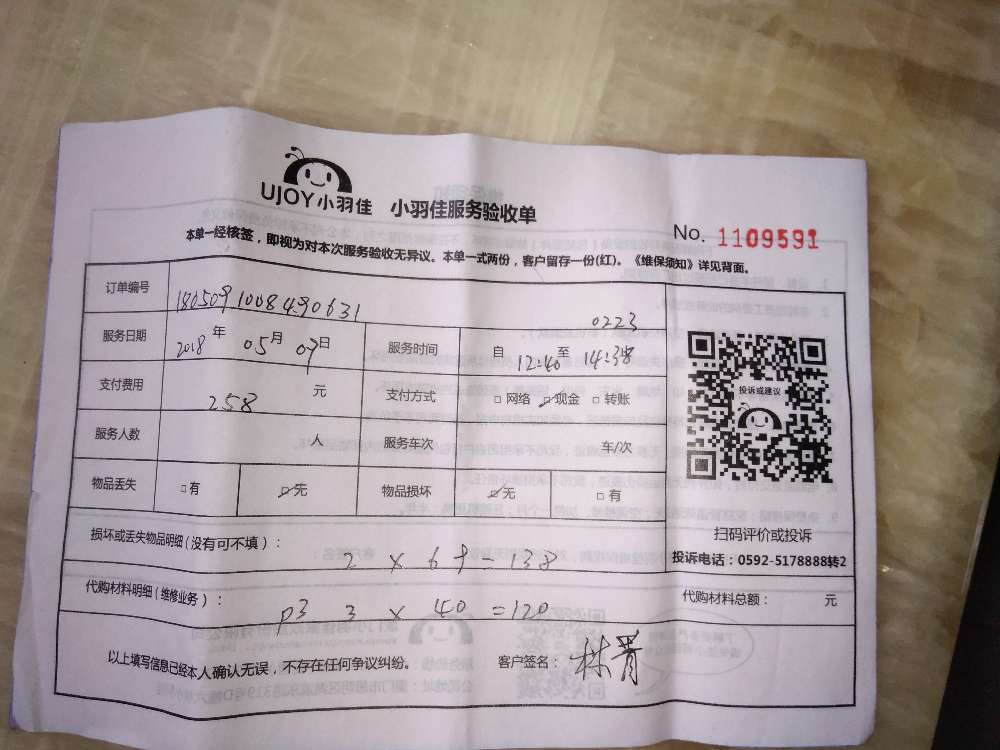 UJOY小羽佳 小羽佳服务验收单
No. 1109591
本单一经核签，即视为对本次服务验收无异议。本单一式两份，客户留存一份(红)。《维保须知》详见背面。
订单编号 1805091008490631
0223
服务日期 2018年 05月 09日 服务时间 自 12:40 至 14:38
支付费用 258 元 支付方式 □网络 ☑现金 □转账
投诉或建议
服务人数 人 服务车次 车/次
物品丢失 □有 ☑无 物品损坏 ☑无 □有
扫码评价或投诉
损坏或丢失物品明细(没有可不填)： 2 × 69 = 138
投诉电话：0592-5178888转2
代购材料明细(维修业务)： P3 3 × 40 = 120
代购材料总额： 元
以上填写信息已经本人确认无误，不存在任何争议纠纷。 客户签名：林菁